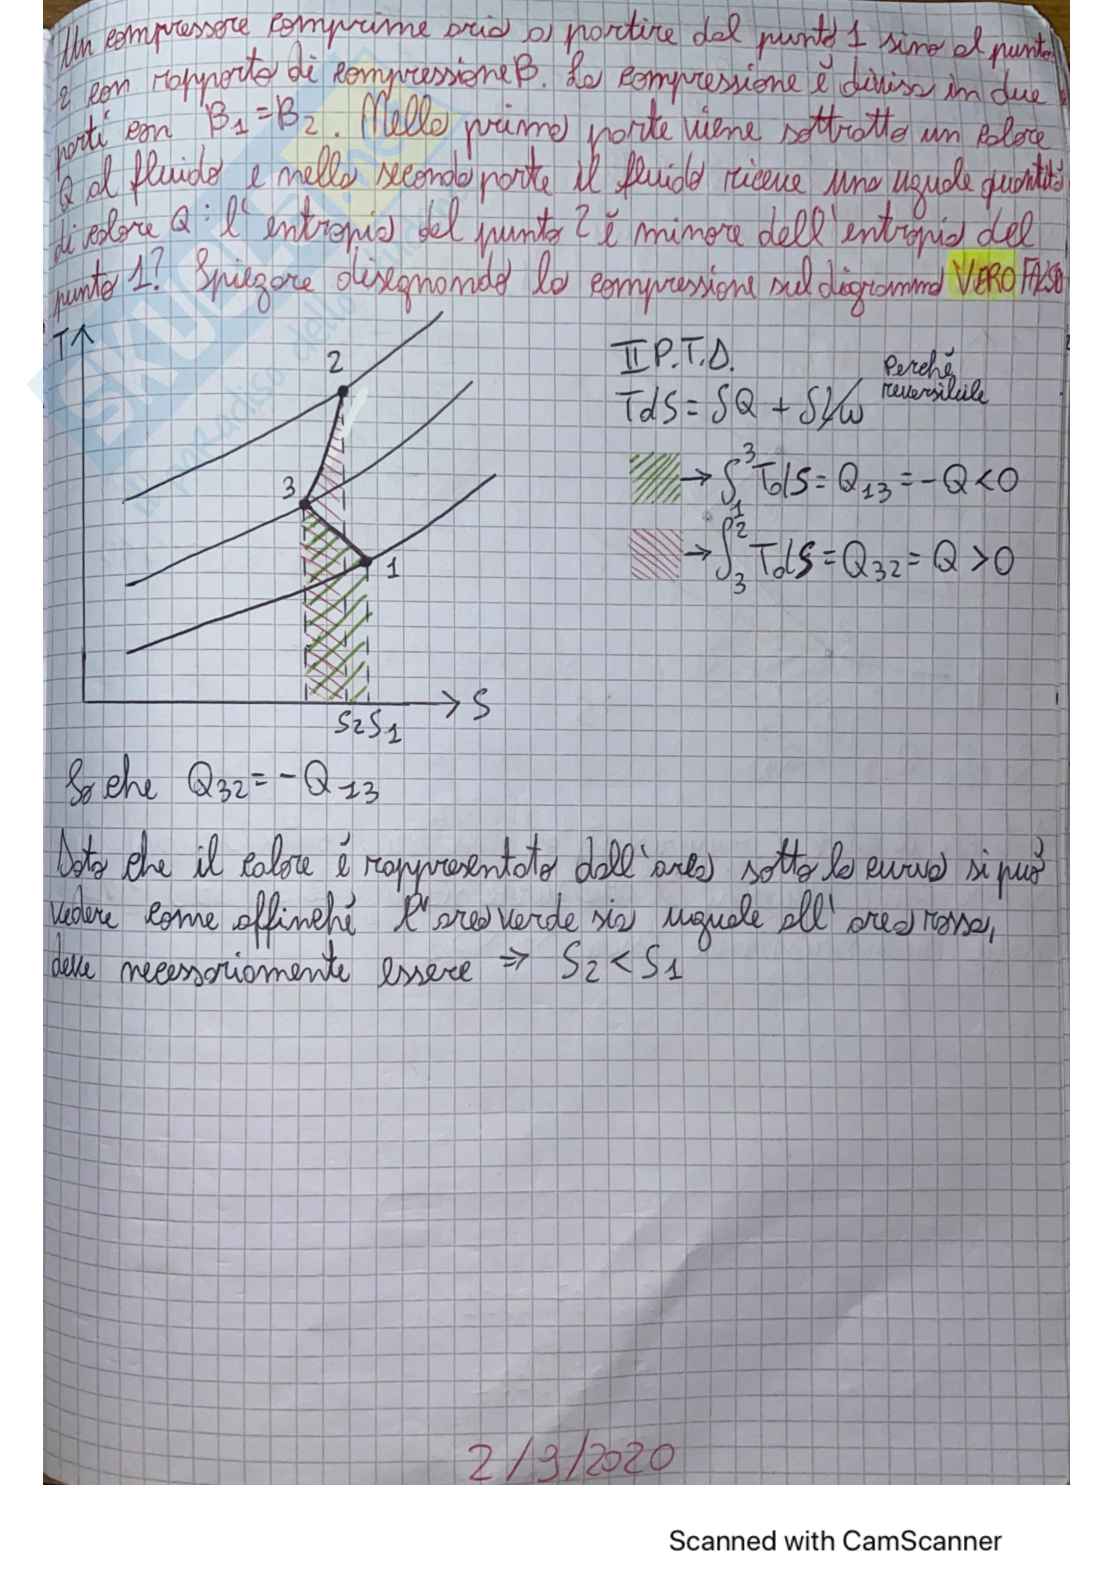 Un compressore comprime aria a partire dal punto 1 sino al punto
2 con rapporto di compressione β. La compressione è divisa in due
parti con β1=β2. Nella prima parte viene sottratto un calore
Q al fluido e nella seconda parte il fluido riceve una uguale quantità
di calore Q: l'entropia del punto 2 è minore dell'entropia del
punto 1? Spiegare disegnando la compressione sul diagramma VERO FALSO
T
2
3
1
S2 S1
S
II P.T.D.
Perché
reversibile
TdS = δQ + δLw
→ ∫₁³ TdS = Q13 = -Q < 0
→ ∫₃² TdS = Q32 = Q > 0
So che Q32 = -Q13
Dato che il calore è rappresentato dall'area sotto la curva si può
vedere come affinché l'area verde sia uguale all'area rossa,
deve necessariamente essere ⇒ S2 < S1
2/3/2020
Scanned with CamScanner